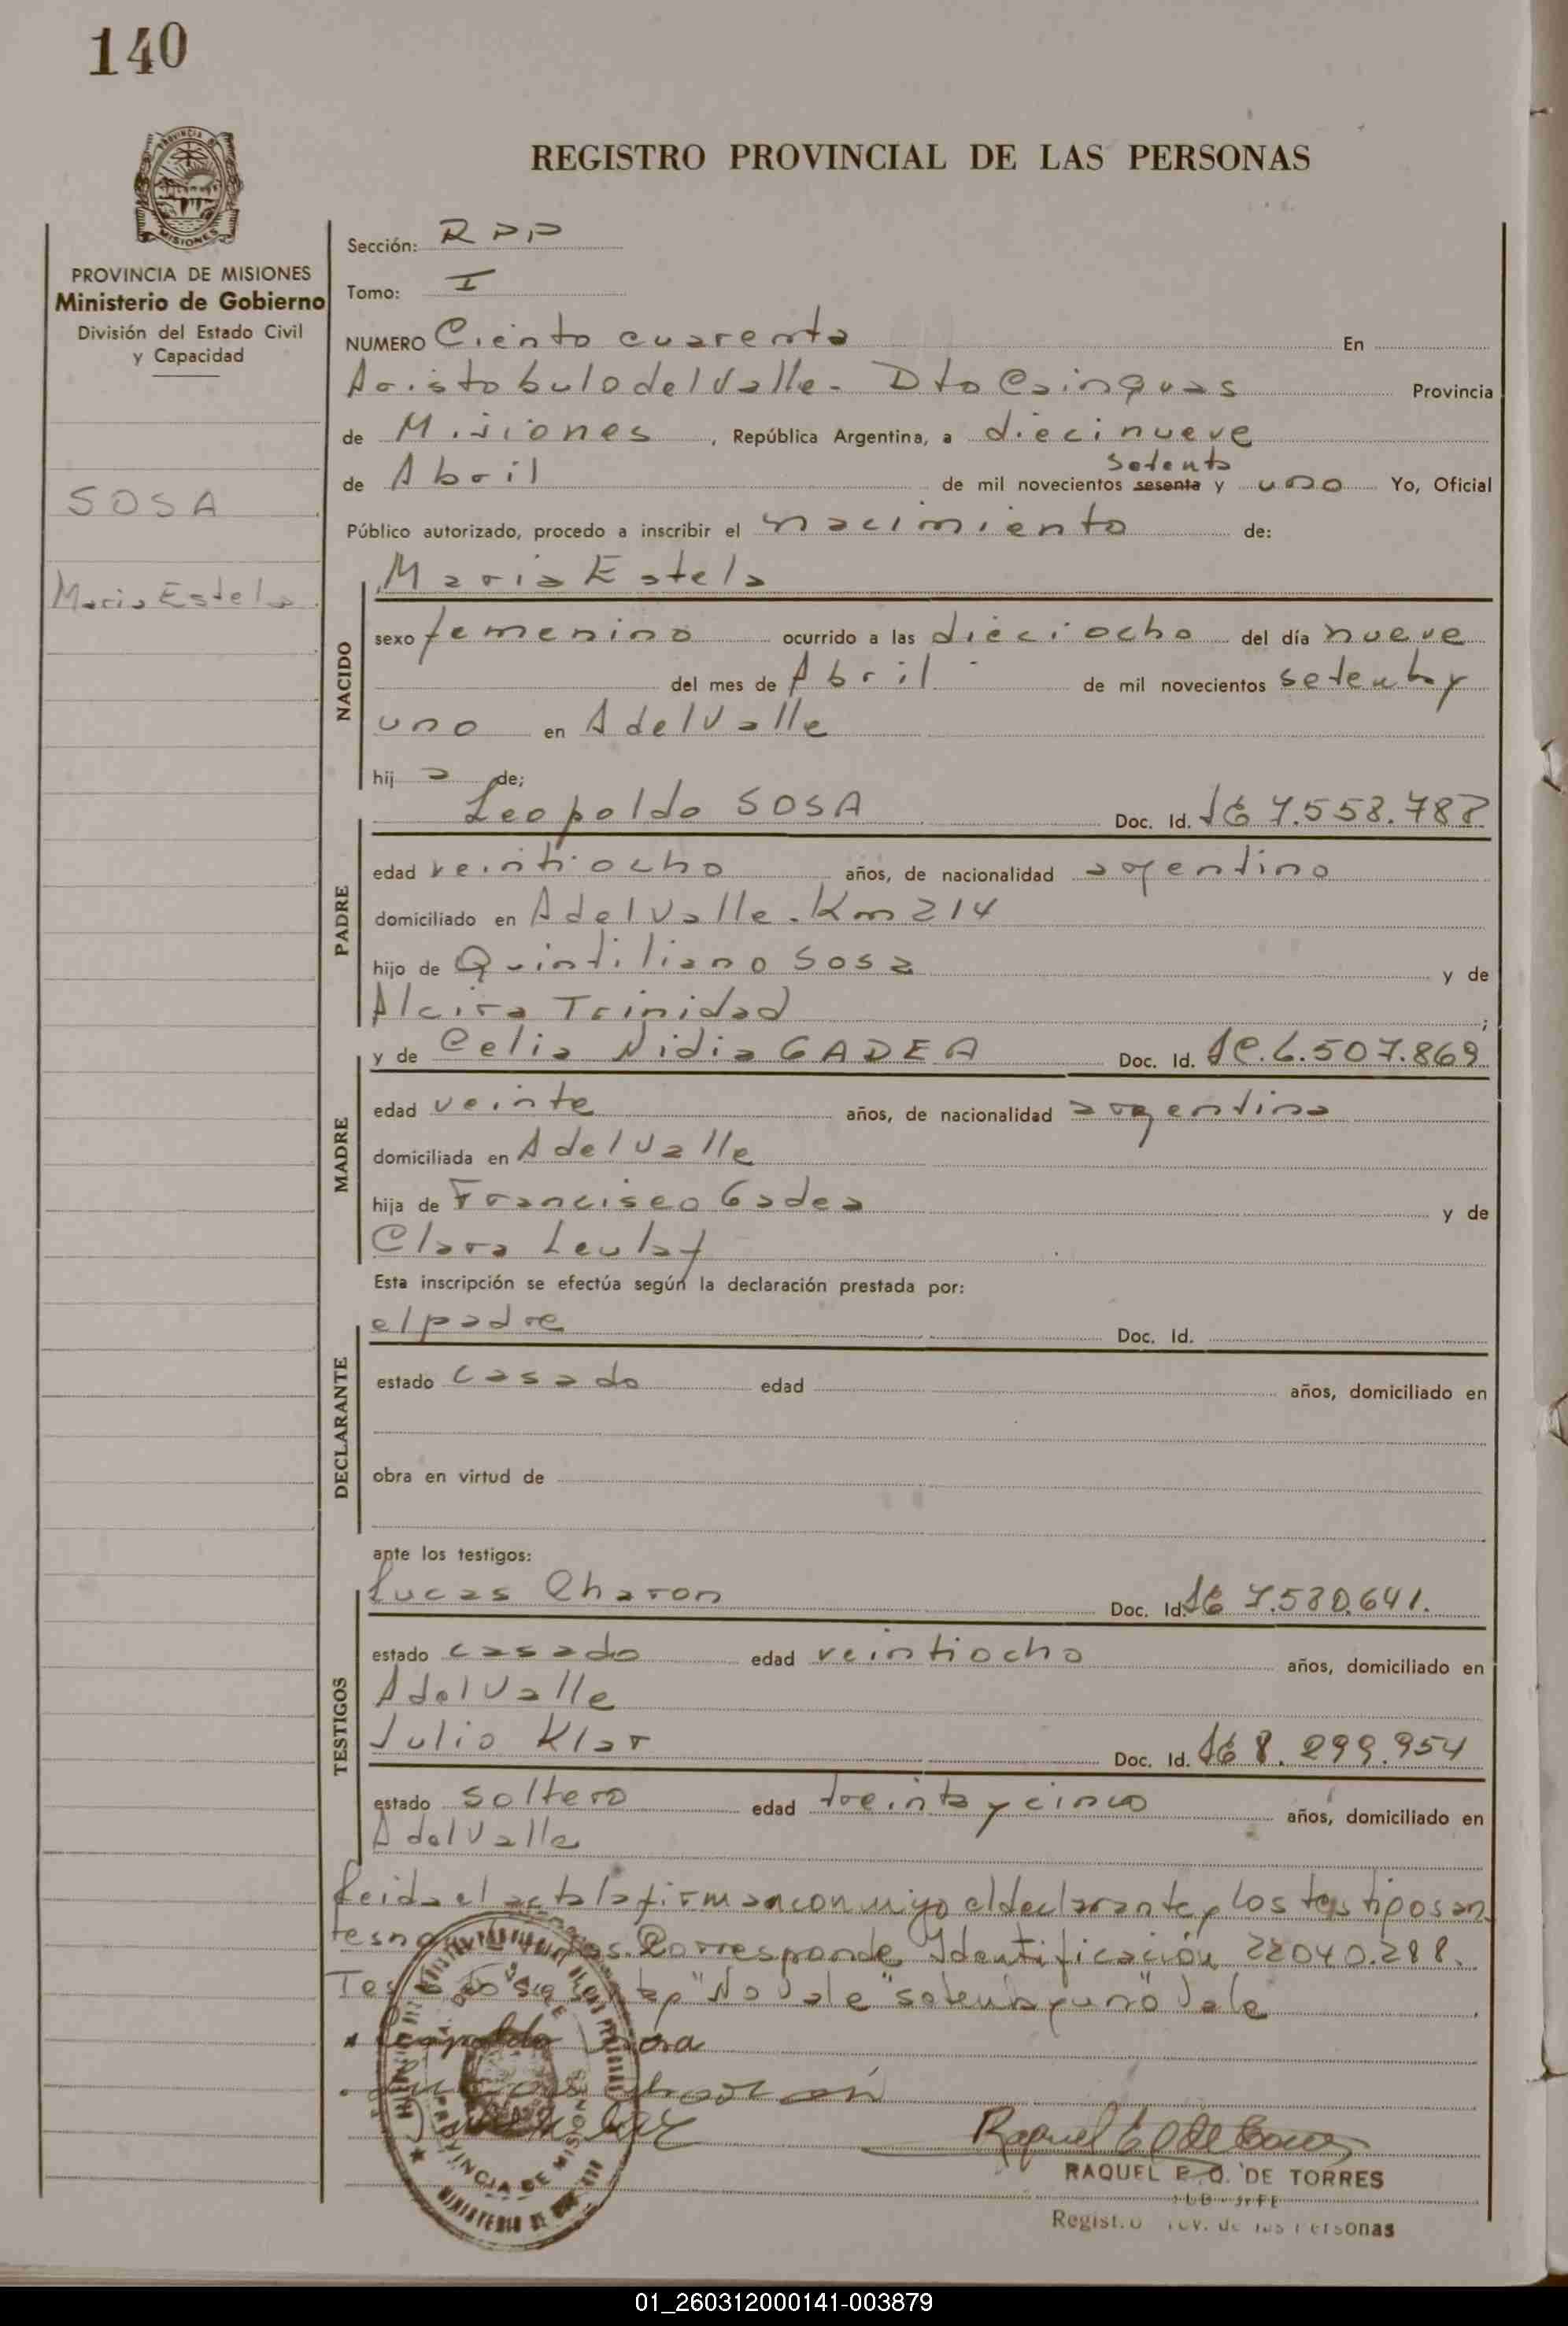 140
PROVINCIA DE MISIONES
REGISTRO PROVINCIAL DE LAS PERSONAS
PROVINCIA DE MISIONES
Ministerio de Gobierno
División del Estado Civil
y Capacidad
SOSA
Maria Estela
Sección: RPP
Tomo: I
NUMERO Ciento cuarenta En
Aristobulo del Valle - Dto Cainguas Provincia
de Misiones, República Argentina, a diecinueve
setenta
de Abril de mil novecientos sesenta y uno Yo, Oficial
Público autorizado, procedo a inscribir el nacimiento de:
NACIDO
Maria Estela
sexo femenino ocurrido a las dieciocho del día nueve
del mes de Abril de mil novecientos setenta y
uno en A del Valle
hij a de:
PADRE
Leopoldo SOSA Doc. Id. 7.558.788
edad veintiocho años, de nacionalidad argentino
domiciliado en A del Valle. Km 214
hijo de Quintiliano Sosa y de
Alcira Trinidad ;
MADRE
y de Celia Nidia GADEA Doc. Id. 6.507.869
edad veinte años, de nacionalidad argentina
domiciliada en A del Valle
hija de Francisco Gadea y de
Clara
Esta inscripción se efectúa según la declaración prestada por:
DECLARANTE
el padre Doc. Id.
estado casado edad años, domiciliado en
obra en virtud de
ante los testigos:
TESTIGOS
Lucas Charon Doc. Id. 7.580.641.
estado casado edad veintiocho años, domiciliado en
A del Valle
Julio Klar Doc. Id. 8.299.954
estado soltero edad treinta y cinco años, domiciliado en
A del Valle
Leida el acta la firman con migo el declarante y los testigos an
tes Corresponde Identificación 22040.288.
"No Vale" "setenta y uno" Vale
Leopoldo Sosa
PROVINCIA DE MISIONES
MINISTERIO DE
RAQUEL E. O. DE TORRES
SUB-JEFE
Registro Prov. de las Personas
01_260312000141-003879